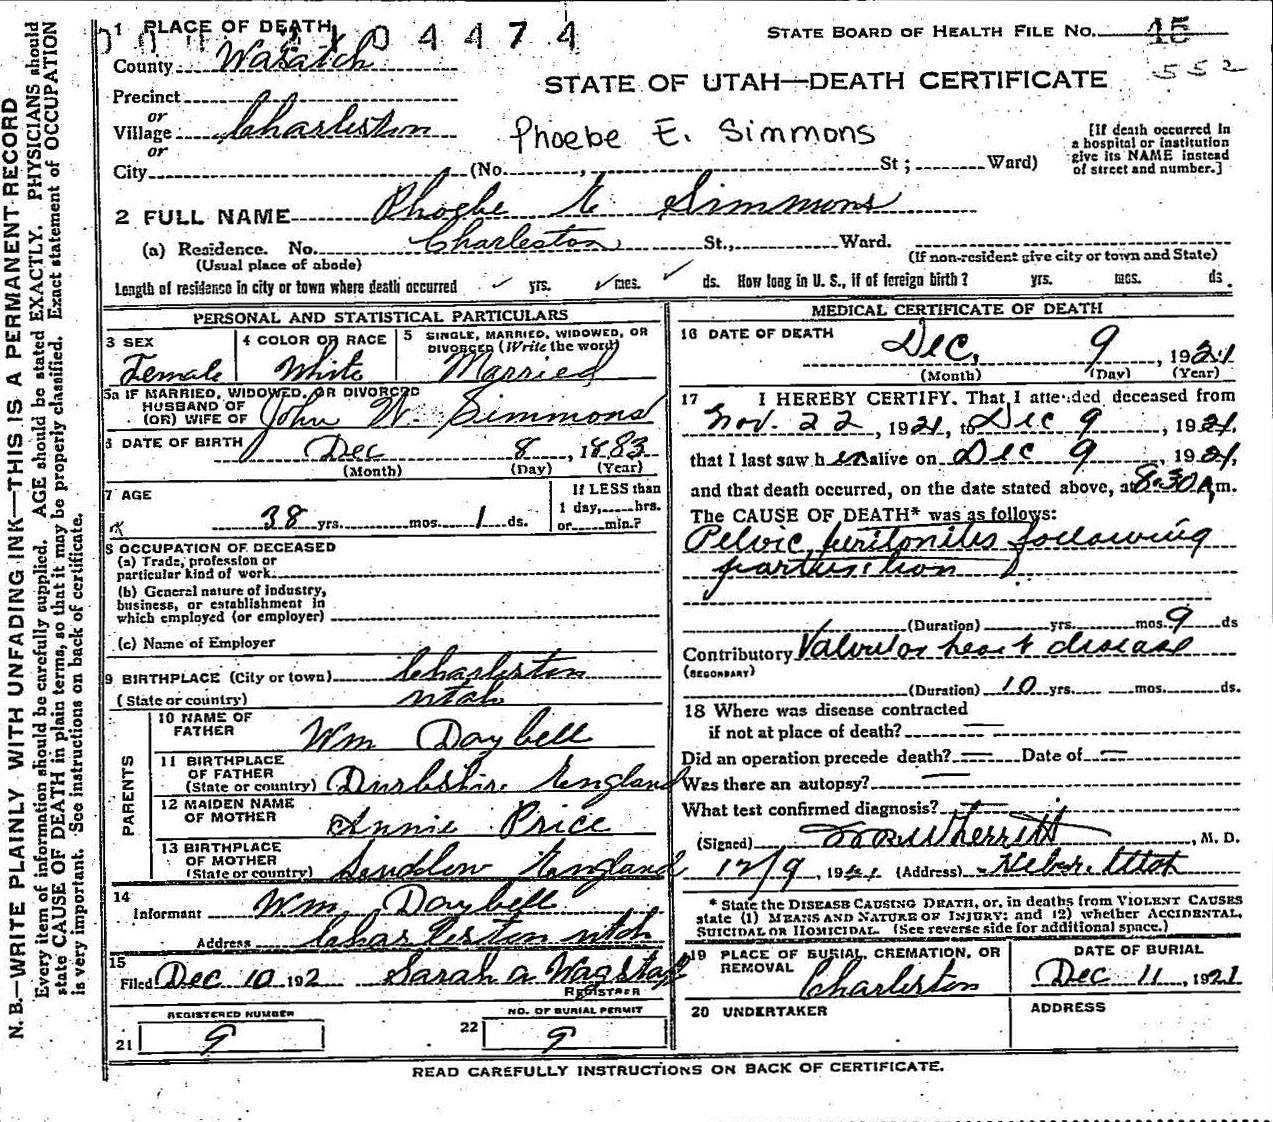 1 PLACE OF DEATH
04474
STATE BOARD OF HEALTH FILE NO. 15
552
County Wasatch
STATE OF UTAH—DEATH CERTIFICATE
Precinct
or
Village Charleston
Phoebe E. Simmons
or
City (No. , St ; Ward)
[If death occurred in
a hospital or institution
give its NAME instead
of street and number.]
2 FULL NAME Phoebe E Simmons
(a) Residence. No. Charleston St., Ward.
(Usual place of abode)
(If non-resident give city or town and State)
Length of residence in city or town where death occurred ✓ yrs. ✓ mos. ✓ ds. How long in U. S., if of foreign birth? yrs. mos. ds.
PERSONAL AND STATISTICAL PARTICULARS
3 SEX
Female
4 COLOR OR RACE
White
5 SINGLE, MARRIED, WIDOWED, OR
DIVORCED (Write the word)
Married
5a IF MARRIED, WIDOWED, OR DIVORCED
HUSBAND OF
(OR) WIFE OF John W. Simmons
6 DATE OF BIRTH Dec 8, 1883
(Month) (Day) (Year)
7 AGE
38 yrs. mos. 1 ds.
If LESS than
1 day, hrs.
or min.?
8 OCCUPATION OF DECEASED
(a) Trade, profession or
particular kind of work
(b) General nature of industry,
business, or establishment in
which employed (or employer)
(c) Name of Employer
9 BIRTHPLACE (City or town) Charleston
(State or country) utah
PARENTS
10 NAME OF
FATHER Wm Daybell
11 BIRTHPLACE
OF FATHER
(State or country) England
12 MAIDEN NAME
OF MOTHER Annie Price
13 BIRTHPLACE
OF MOTHER
(State or country) England
14
Informant Wm Daybell
Address Charleston utah
15
Filed Dec 10 192 Sarah a Wagstaff
REGISTRER
REGISTERED NUMBER
21 9
NO. OF BURIAL PERMIT
22 9
MEDICAL CERTIFICATE OF DEATH
16 DATE OF DEATH Dec, 9, 1921
(Month) (Day) (Year)
17 I HEREBY CERTIFY. That I attended deceased from
Nov. 22, 1921, to Dec 9, 1921.
that I last saw her alive on Dec 9 1921,
and that death occurred, on the date stated above, at 8:30 A m.
The CAUSE OF DEATH* was as follows:
Pelvic peritonitis following
parturition
(Duration) yrs. mos. 9 ds
Contributory Valvular heart disease
(SECONDARY)
(Duration) 10 yrs. mos. ds.
18 Where was disease contracted
if not at place of death?
Did an operation precede death? Date of
Was there an autopsy?
What test confirmed diagnosis?
(Signed) Wherritt, M. D.
12/9, 1921 (Address) Heber. Utah
* State the DISEASE CAUSING DEATH, or, in deaths from VIOLENT CAUSES
state (1) MEANS AND NATURE OF INJURY; and (2) whether ACCIDENTAL,
SUICIDAL OR HOMICIDAL. (See reverse side for additional space.)
19 PLACE OF BURIAL, CREMATION, OR
REMOVAL Charleston
DATE OF BURIAL
Dec 11, 1921
20 UNDERTAKER
ADDRESS
READ CAREFULLY INSTRUCTIONS ON BACK OF CERTIFICATE.
N. B.—WRITE PLAINLY WITH UNFADING INK—THIS IS A PERMANENT RECORD
Every item of information should be carefully supplied. AGE should be stated EXACTLY. PHYSICIANS should
state CAUSE OF DEATH in plain terms, so that it may be properly classified. Exact statement of OCCUPATION
is very important. See instructions on back of certificate.